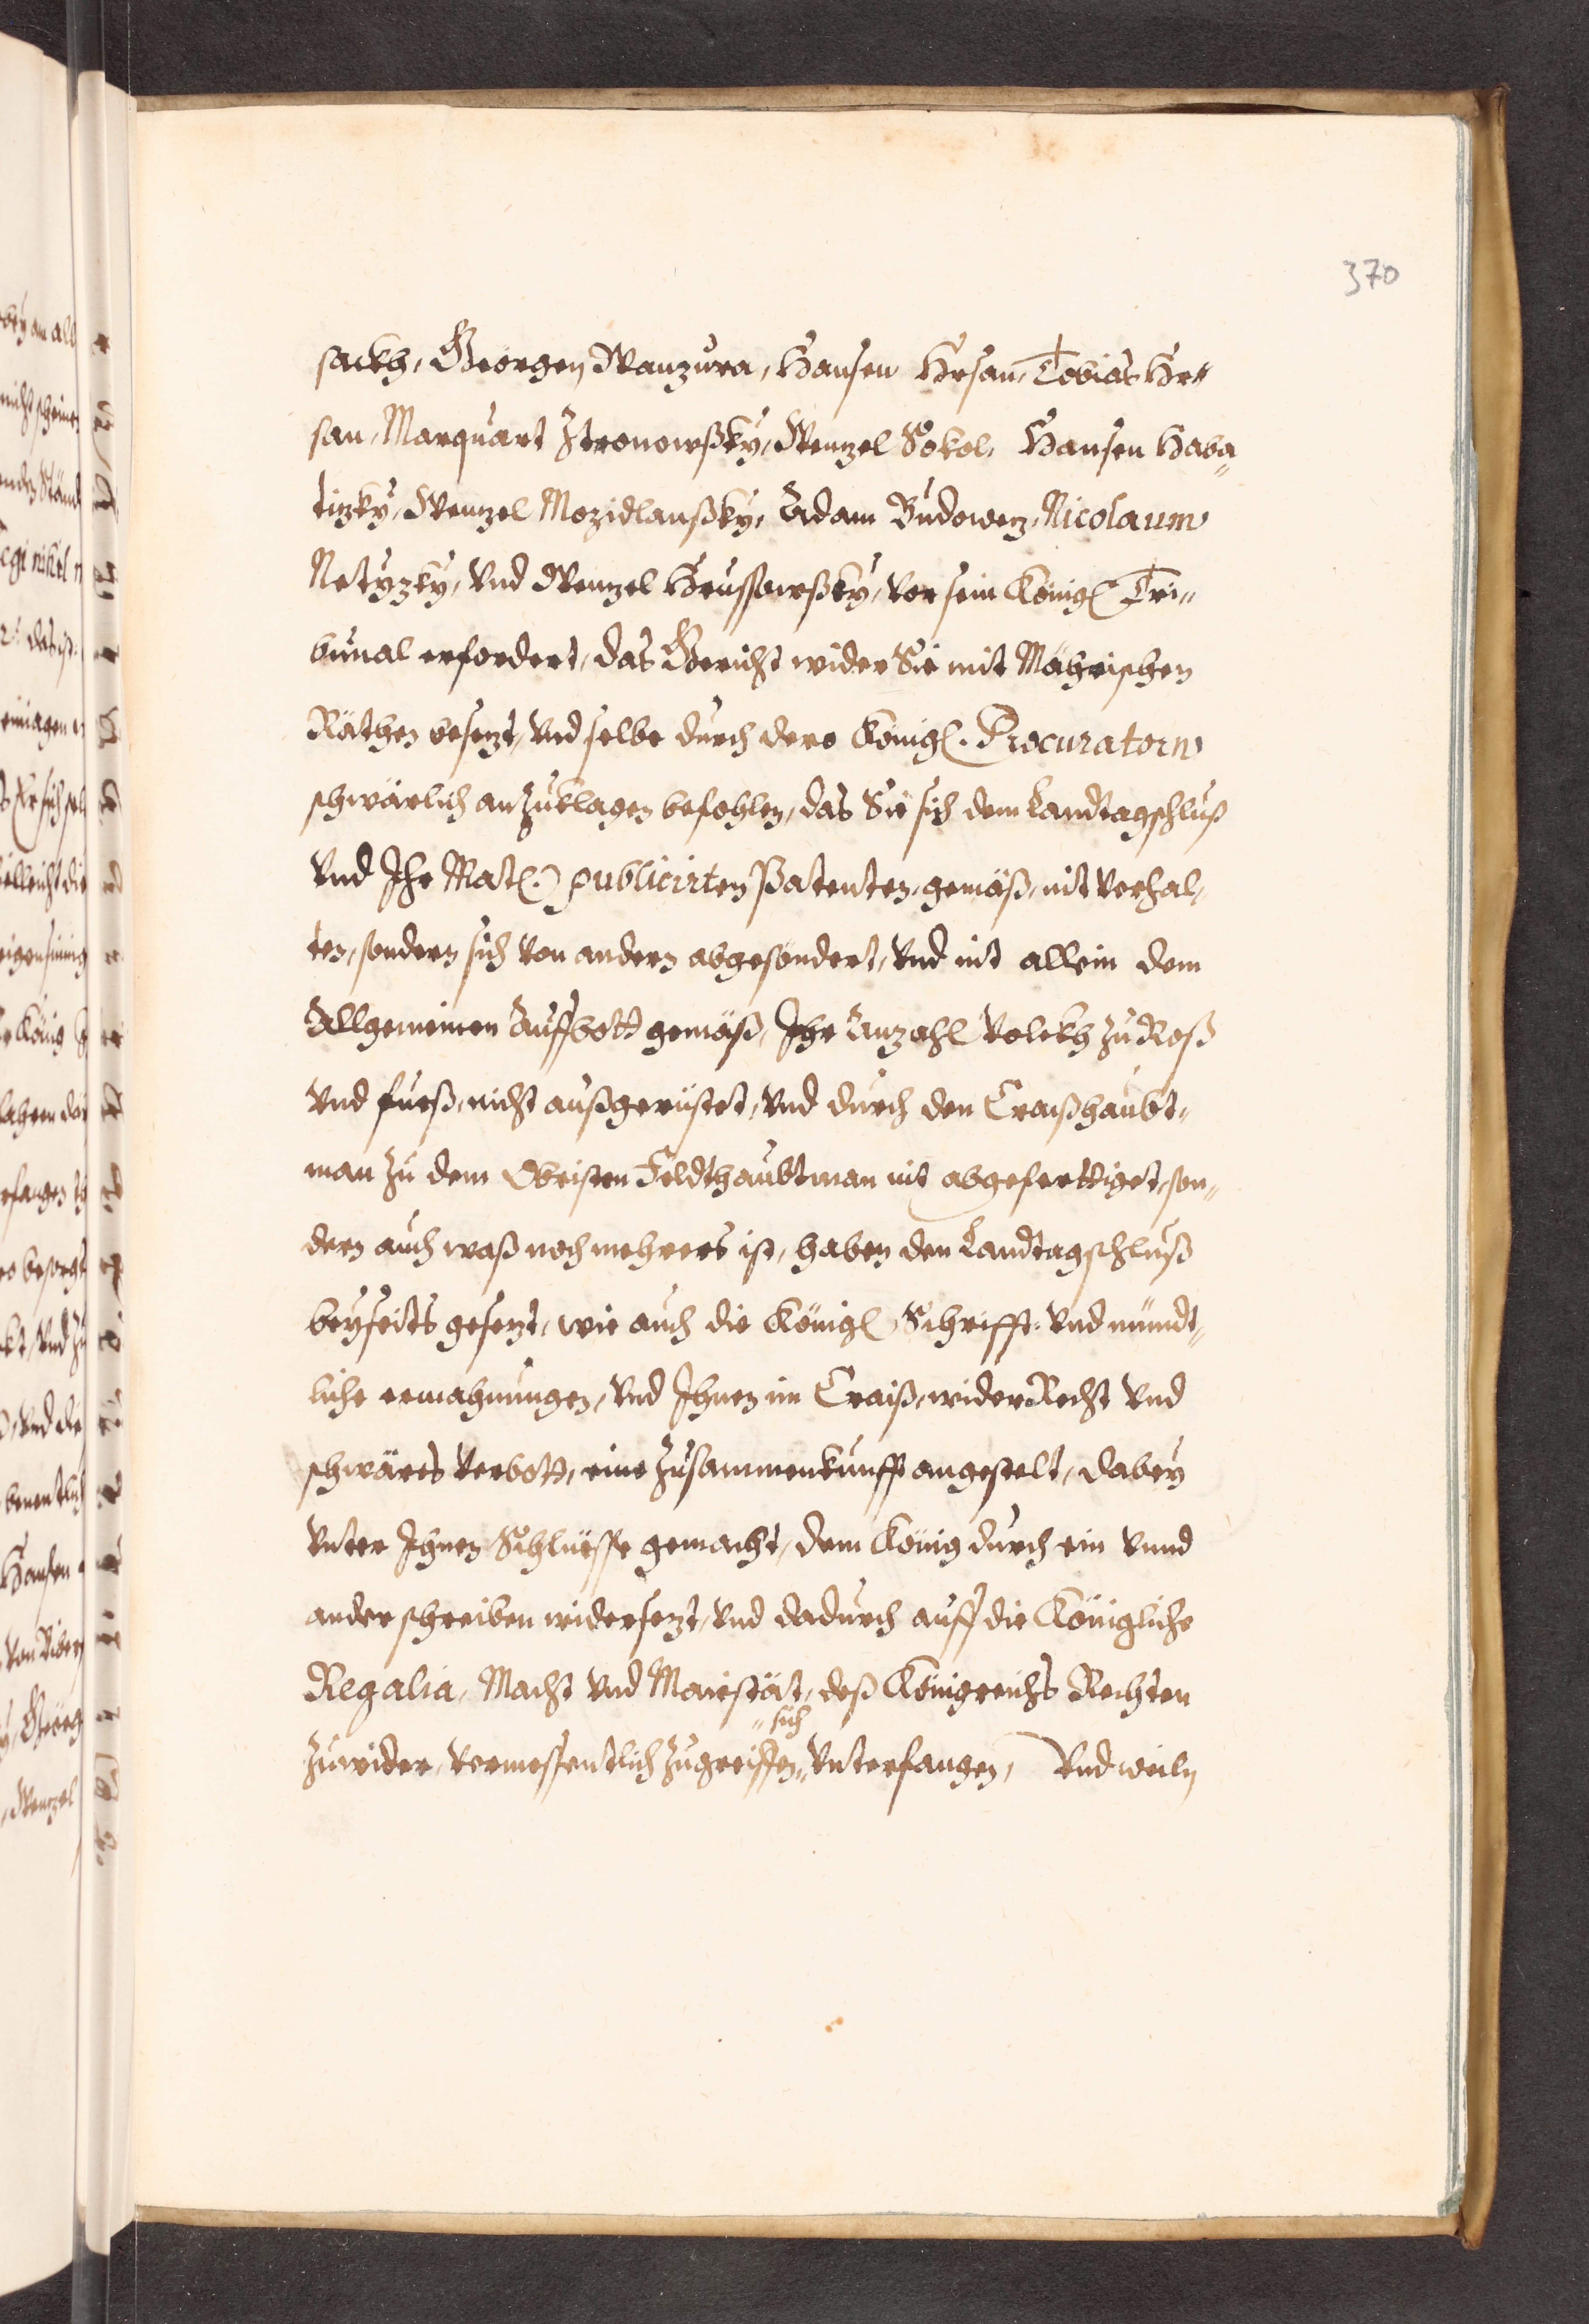 370
sackh, Georgen Wanzura, Hansen Hrsan, Tobias Hr„
san, Marquart Ztronowßky, Wenzel Sokol, Hansen Haba„
tizky, Wenzel Mozidlanßky, Adam Budowez, Nicolaum
Netyzky, vnd Wenzel Hrussowßky, vor sein Königl Tri„
bunal erfordert, das Gericht wider Sie mit Mährischen
Räthen besezt, vnd selbe durch dero Königl. Procuratorn
schwärlich anzuklagen befohlen, das Sie sich dem Landtagschluß
vnd Ihr Matl. publicirten Patenten, gemäß, nit verhal„
ten, sondern sich von andern abgesondert, vnd nit allein dem
Allgemeinen Auffbott gemäß, Ihr Anzahl Volckh zu Roß
vnd fueß, nicht außgerüstet, vnd durch den Craißhaubt„
man zu dem Obristen Feldthaubtman nit abgeferttiget, son„
dern auch waß noch mehrers ist, haben den Landtagschluß
beyseits gesezt, wie auch die Königl Schrifft: vnd mündt„
liche ermahnungen, vnd Ihnen im Craiß, wider Recht vnd
schwäres verbott, eine Zusammenkunfft angestelt, dabey
vnter Ihnen Schlüsse gemacht, dem König durch ein vnnd
ander schreiben widersezt, vnd dadurch auff die Königliche
Regalia, Macht vnd Maiestät, deß Königreichs Rechten
„sich
zuwider, vermessentlich zugreiffen„ vnterfangen, Vnd weiln